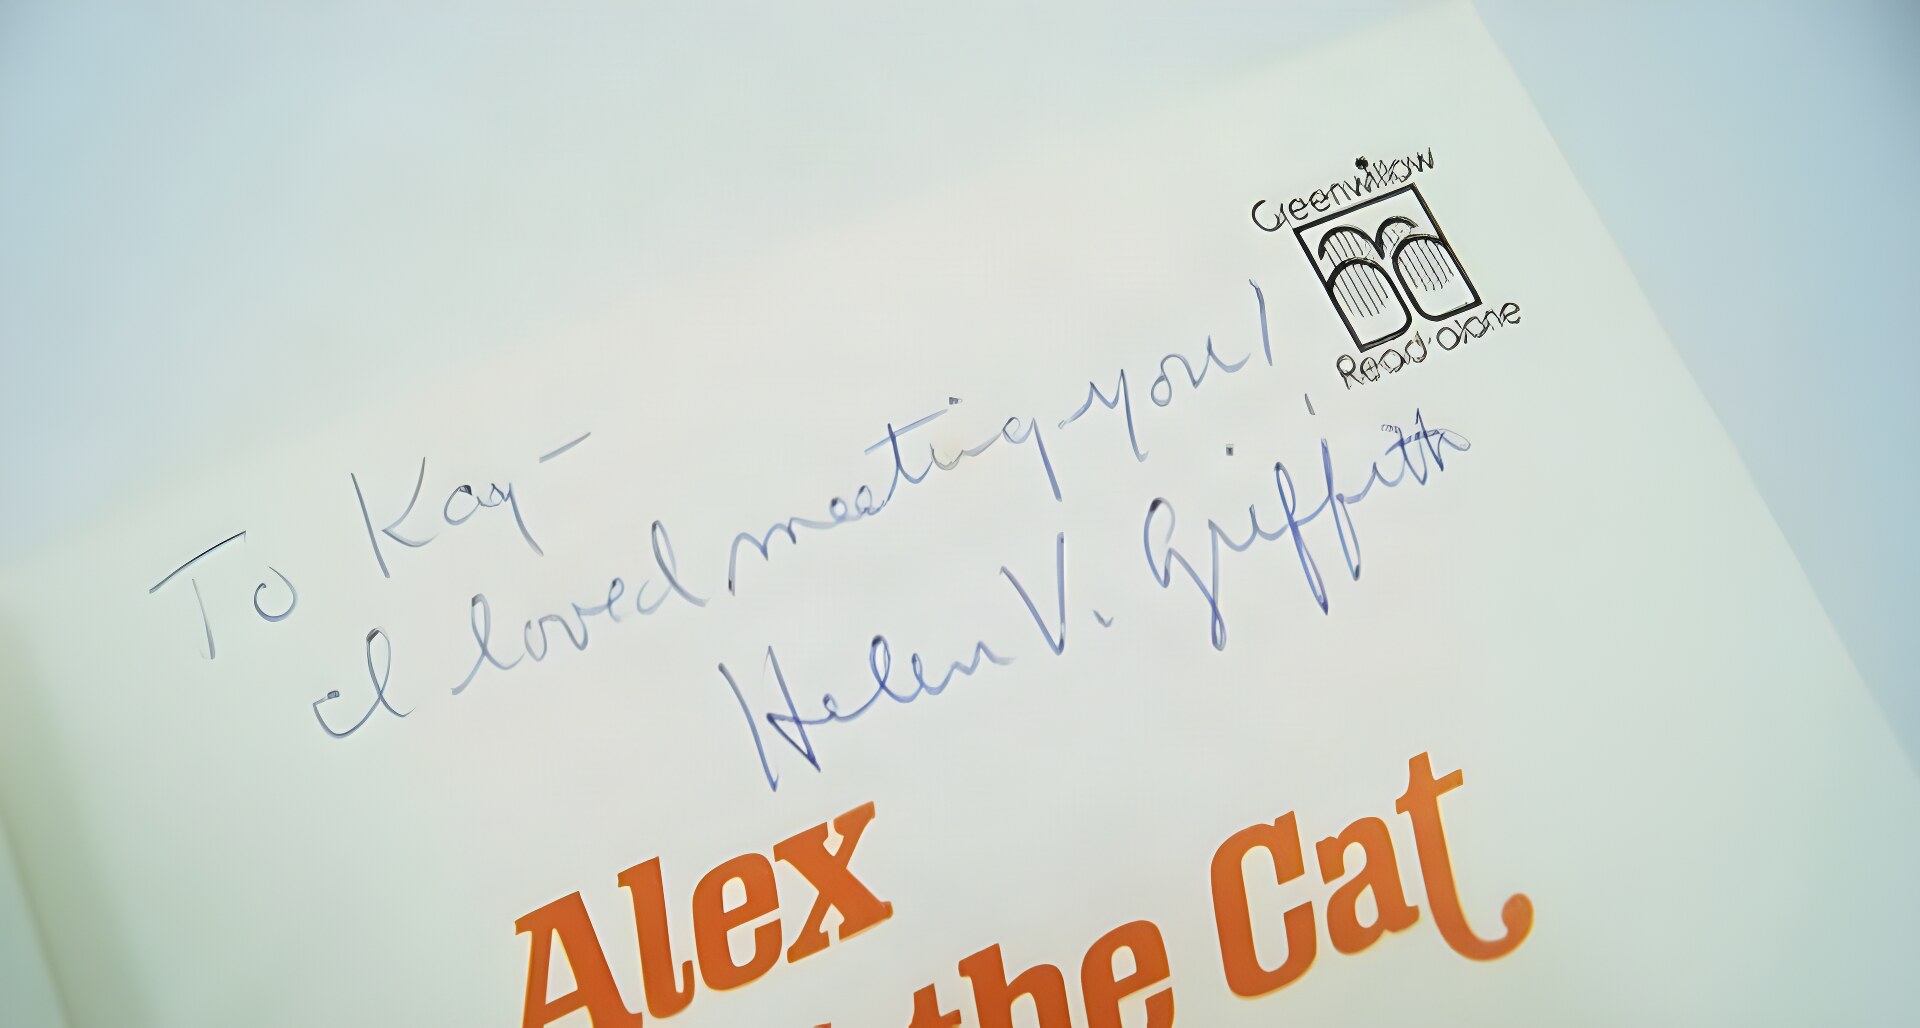 Greenwillow
Read-alone
To Kay –
I loved meeting you!
Helen V. Griffith
Alex
the Cat